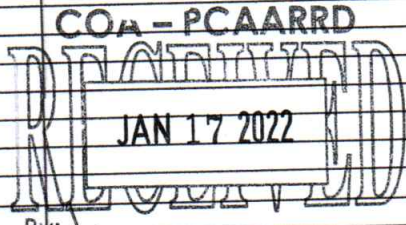 COA - PCAARRD
RECEIVED
JAN 17 2022
By: